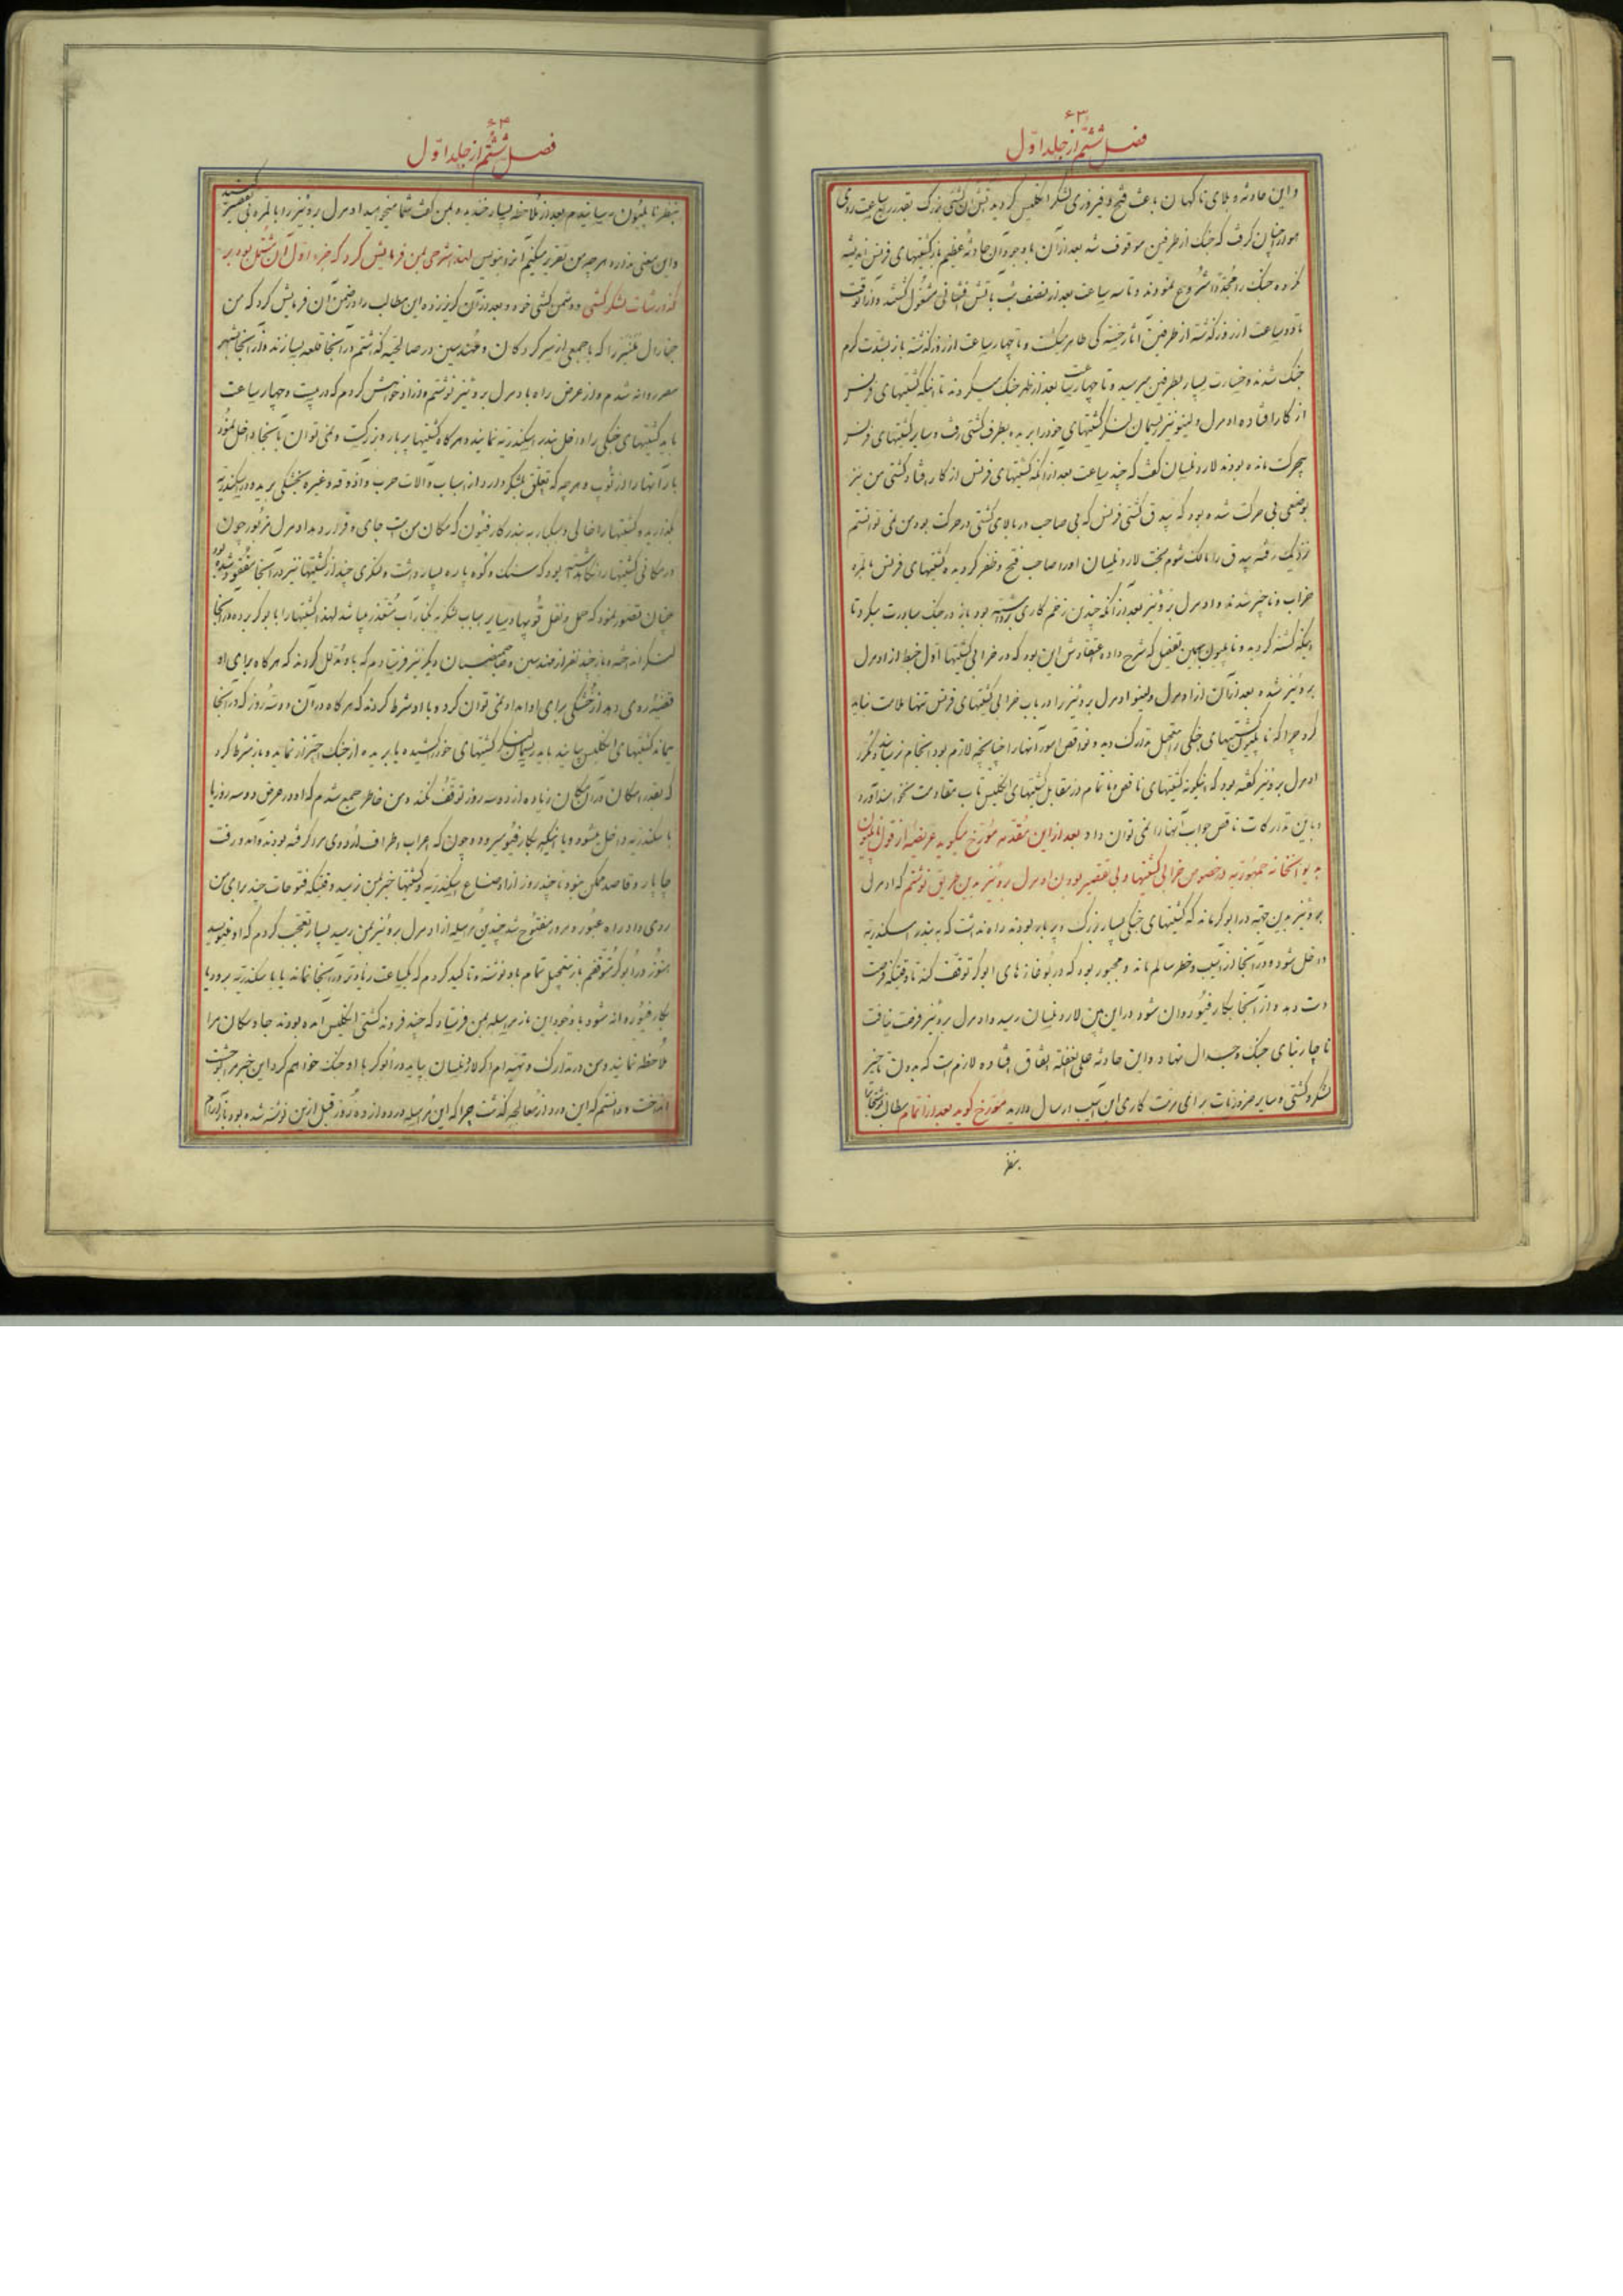 ۶۳
فصل ششم از جلد اول
و این حادثه و بلای ناکهان باعث فتح و فیروزی لشکر انکلیس کردید آتش آن کشتی بزرک بقدر ربع ساعت روی
هوا را چنان کرفت که جنک از طرفین موقوف شد بعد از آن با وجود آن حادثه عظیم باز کشتیهای فرنس اندیشه
نکرده جنک را مجدداً شروع نمودند و تا سه ساعت بعد از نصف شب بآتش فشانی مشغول کشتند و از آنوقت
تا دو ساعت از روز کذشته از طرفین آثار خستکی ظاهر میکشت و تا چهار ساعت از روز کذشته باز بشدت کرم
جنک شدند و خسارت بسیار بطرفین میرسید و تا چهار ساعت بعد از ظهر جنک میکردند تا اینکه کشتیهای فرنس
از کار افتاده ادمرل ولینو نیز ریسمان لنکر کشتیهای خود را بریده بطرف کشتی رفت و سایر کشتیهای فرنس
بیحرکت مانده بودند لارد نلسان کفت که چند ساعت بعد از آنکه کشتیهای فرنس از کار افتاد کشتی من نیز
بوضعی بی حرکت شده بود که بیدق کشتی فرنس که بی صاحب در بالای کشتی در حرکت بود من نمی توانستم
نزدیک رفته بیدق را مالک شوم بخت لارد نلسان او را صاحب فتح و ظفر کردیده کشتیهای فرنس بالمره
خراب و ناچیز شدند و ادمرل بروئیز بعد از آنکه چندین زخم کاری برداشته بود باز در جنک مبادرت میکرد تا
اینکه کشته کردید و ناپلیون بهمین تفصیل که شرح داده اعتقادش این بود که در خرابی کشتیها اول خبط از ادمرل
بروئیز شده بعد از آن از ادمرل ولینو ادمرل بروئیز را در باب خرابی کشتیهای فرنس تنها ملامت نباید
کرد چرا که ناپلیون کشتیهای جنکی را بتعجیل تدارک دید و نواقص امور آنها را چنانچه لازم بود انجام نرسانید و مکرر
ادمرل بروئیز کفته بود که اینکونه کشتیهای ناقص ناتمام در مقابل کشتیهای انکلیس تاب مقاومت نخواهند آورد
و باین تدارکات ناقص جواب آنها را نمی توان داد بعد از این مقدمه مورخ میکوید عریضه از قول ناپلیون
به دیوانخانه جمهوریه در خصوص خرابی کشتیها و بی تقصیر بودن ادمرل بروئیز بدین طریق نوشتم که ادمرل
بروئیز بدین جهة در ابوکر ماند که کشتیهای جنکی بسیار بزرک و پر بار بودند راه نداشت که به بندر اسکندریه
داخل شود و در آنجا از آسیب و خطر سالم ماند و مجبور بود که در بوغازهای ابوکر توقف کند تا وقتیکه فرصت
دست دهد و از آنجا بکارفیو روان شود در این بین لارد نلسان رسید و ادمرل بروئیز فرصت نیافت
ناچار بنای جنک و جدال نهاد و این حادثه علی الغفلة اتفاق افتاده لازم است که بدون تاخیر
لشکر و کشتی و سایر ضروریات برای مرمت کاری این آسیب ارسال دارید مورخ کوید بعد از اتمام مطالب نوشتجات را
بنظر
۶۴
فصل ششم از جلد اول
بنظر ناپلیون رسانیدم بعد از ملاحظه بسیار خندیده بمن کفت شما میخواهید ادمرل بروئیز را بالمره بی تقصیر کنید
و این معنی ندارد هر چه من تقریر میکنیم آنرا بنویس لهذا شرحی بمن فرمایش کرد که جزء اول آن مشتمل بود بر
کذارشات لشکر کشتی و دشمن کشتی خود و بعد از آن این مطالب را در ضمن آن فرمایش کرد که من
جنارال را که با جمعی از سرکردکان و مهندسین در صالحیه کذاشتم در آنجا قلعه بسازند و از آنجا بشهر
مصر روانه شدم و از عرض راه بادمرل بروئیز نوشتم و از او خواهش کردم که در بیست و چهار ساعت
باید کشتیهای جنکی را داخل بندر اسکندریه نمایند و هر کاه کشتیها پر بار و بزرکست و نمی توان بآنجا داخل نمود
بار آنها را از توپ و هر چه که تعلق بلشکر دارد از اسباب و آلات حرب و آذوقه و غیره بخشکی برید و در اسکندریه
بکذارید و کشتیها را خالی و سبکبار به بندر کارفیون که مکان من است جای و قرار دهد ادمرل مزبور چون
در مکانی کشتیها را نکاهداشته بود که سنک و کوه پاره بسیار داشت و لنکری چند از کشتیها نیز در آنجا مفقود شده بود
چنان تصور نمود که حمل و نقل توپها و سایر اسباب لشکر بکنار آب متعذر میباشد لهذا کشتیها را بابوکر برده در آنجا
لنکر انداخته و باز چند نفر از مهندسین و صاحبمنصبان دیکر نیز فرستادم که باو مدلل کردند که هر کاه برای او
قضیه روی دهد از خشکی برای او امداد نمی توان کرد و با او شرط کردند که هر کاه در آن دو سه روز که در آنجا
بماند کشتیهای انکلیس بیایند باید ریسمان لنکر کشتیهای خود را کشیده یا بریده از جنک احتراز نمایند و باز شرط کرد
که بقدر امکان در آن مکان زیاده از دو سه روز توقف نکند و من خاطر جمع شدم که او در عرض دو سه روز یا
باسکندریه داخل میشود و یا اینکه بکارفیو میرود و چون که اعراب اطراف اردوی مرا کرفته بودند و آمد و رفت
چاپار و قاصد ممکن نبود تا چند روز از اوضاع اسکندریه و کشتیها خبر بمن نرسید وقتیکه فتوحات چند برای من
روی داد و راه عبور و مرور مفتوح شد چندین مراسله از ادمرل بروئیز بمن رسید بسیار تعجب کردم که او مینویسد
هنوز در ابوکر متوقفم باز بتعجیل تمام باو نوشته و تاکید کردم که یکساعت زیادتر در آنجا نماند یا باسکندریه برود یا
بکارفیو روانه شود با وجود این باز مراسله بمن فرستاد که چند فروند کشتی انکلیس آمده بودند جا و مکان مرا
ملاحظه نمایند و من در تدارک و تهیه ام اکر لارد نلسان بیاید در ابوکر با او جنک خواهم کرد این خبر مرا بوحشت
انداخت و دانستم که این درد از معالجه کذشت چرا که این مراسله در دوازده روز قبل ازین نوشته شده بود باز آرام